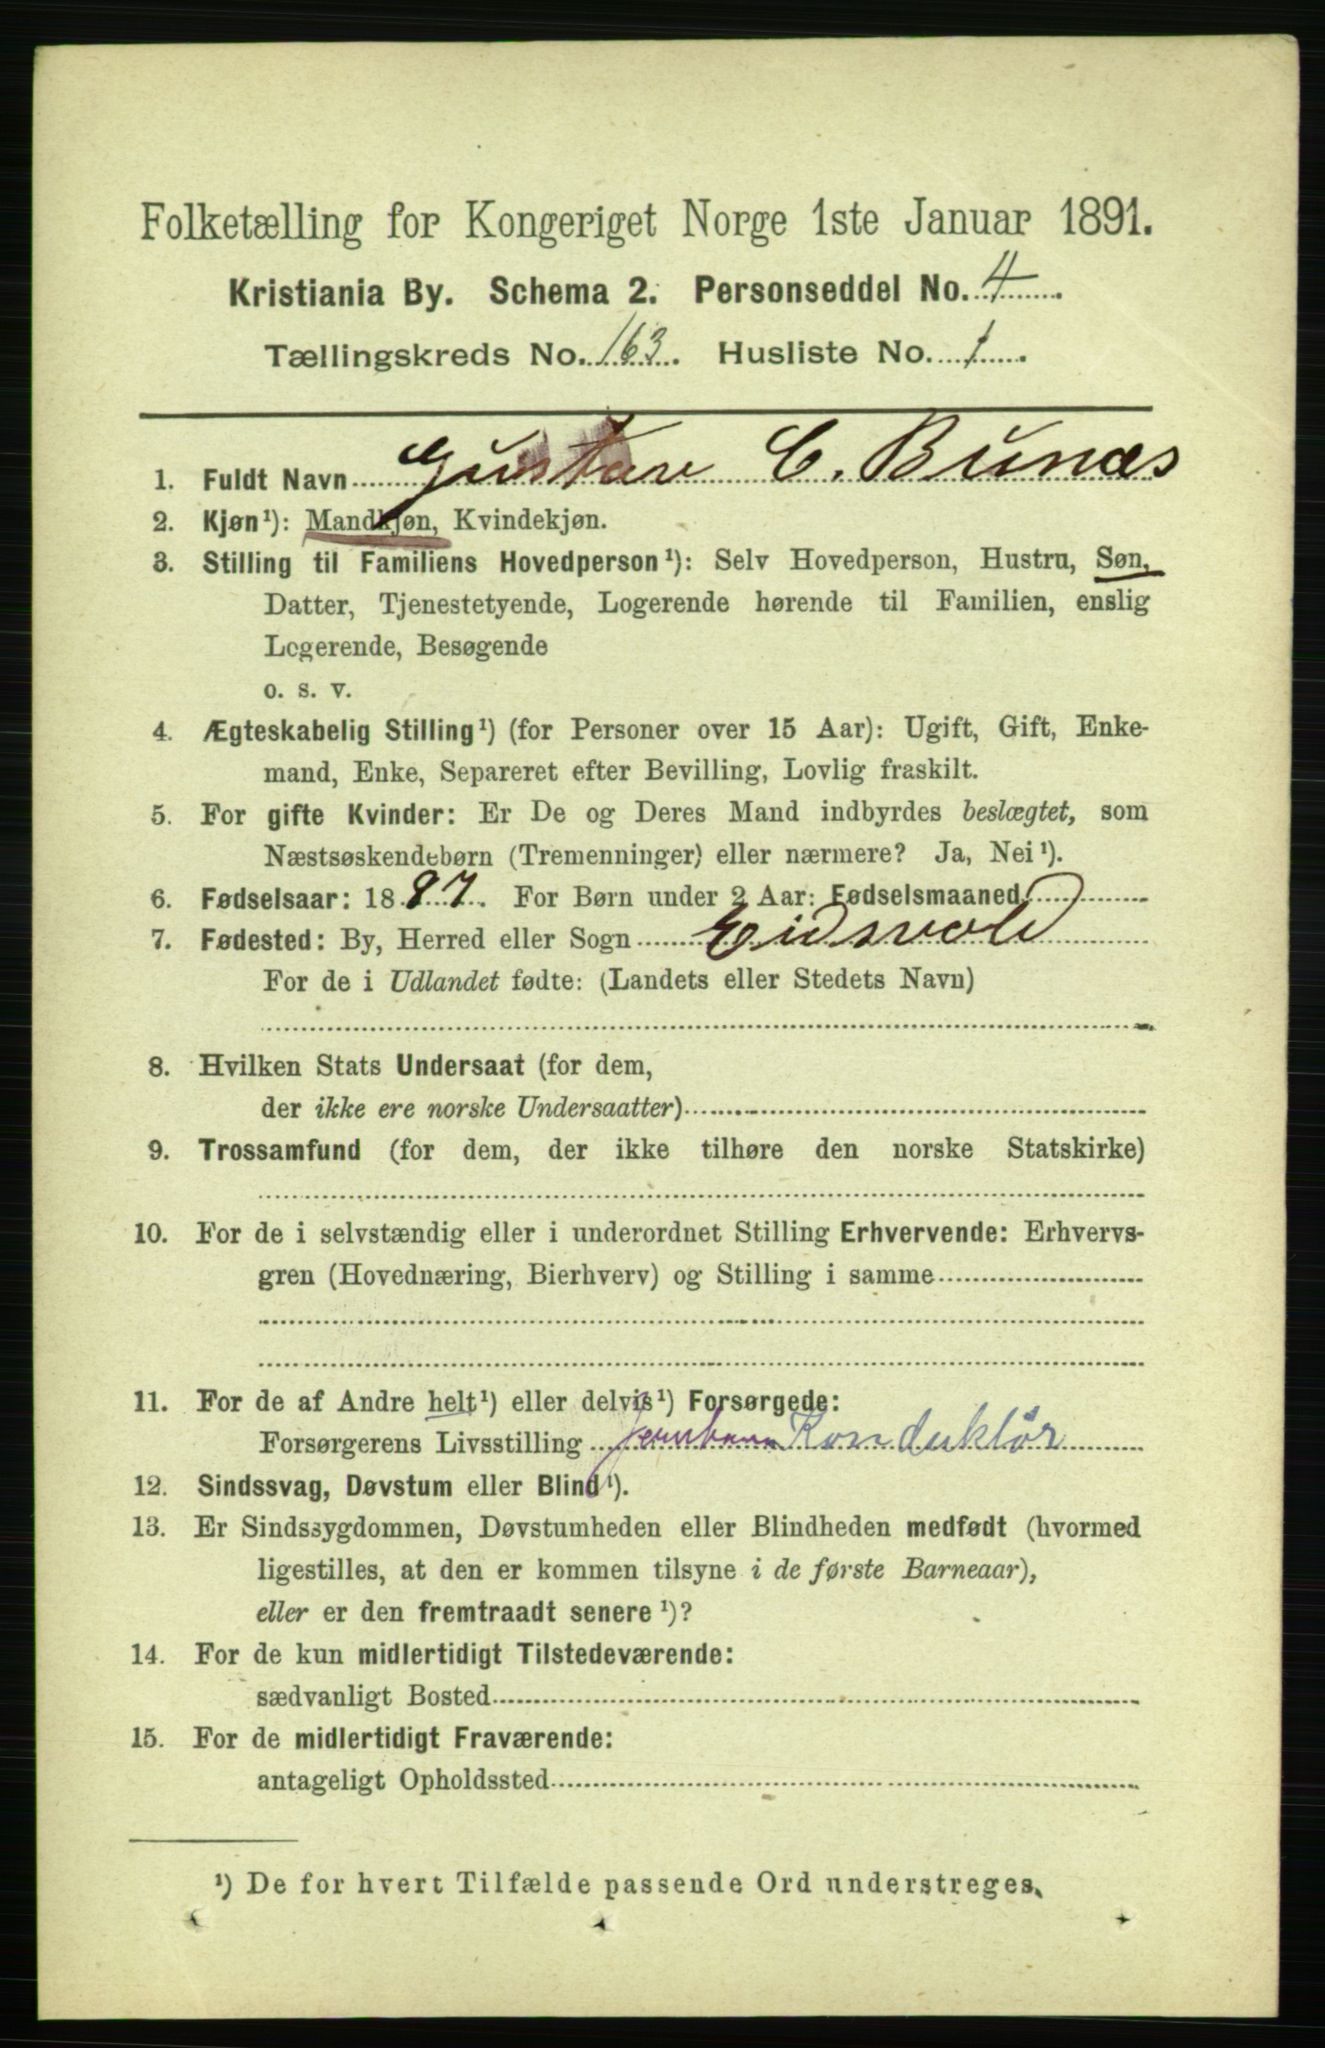 Folketælling for Kongeriget Norge 1ste Januar 1891.
Kristiania By. Schema 2. Personseddel No. 4
Tællingskreds No. 163. Husliste No. 1.
1. Fuldt Navn Gustav C. Bunæs
2. Kjøn¹): Mandkjøn, Kvindekjøn.
3. Stilling til Familiens Hovedperson¹): Selv Hovedperson, Hustru, Søn,
Datter, Tjenestetyende, Logerende hørende til Familien, enslig
Logerende, Besøgende
o. s. v.
4. Ægteskabelig Stilling¹) (for Personer over 15 Aar): Ugift, Gift, Enke-
mand, Enke, Separeret efter Bevilling, Lovlig fraskilt.
5. For gifte Kvinder: Er De og Deres Mand indbyrdes beslægtet, som
Næstsøskendebørn (Tremenninger) eller nærmere? Ja, Nei¹).
6. Fødselsaar: 1887. For Børn under 2 Aar: Fødselsmaaned
7. Fødested: By, Herred eller Sogn Eidsvold
For de i Udlandet fødte: (Landets eller Stedets Navn)
8. Hvilken Stats Undersaat (for dem,
der ikke ere norske Undersaatter)
9. Trossamfund (for dem, der ikke tilhøre den norske Statskirke)
10. For de i selvstændig eller i underordnet Stilling Erhvervende: Erhvervs-
gren (Hovednæring, Bierhverv) og Stilling i samme
11. For de af Andre helt¹) eller delvis¹) Forsørgede:
Forsørgerens Livsstilling Jernbane Konduktör
12. Sindssvag, Døvstum eller Blind¹).
13. Er Sindssygdommen, Døvstumheden eller Blindheden medfødt (hvormed
ligestilles, at den er kommen tilsyne i de første Barneaar),
eller er den fremtraadt senere¹)?
14. For de kun midlertidigt Tilstedeværende:
sædvanligt Bosted
15. For de midlertidigt Fraværende:
antageligt Opholdssted
¹) De for hvert Tilfælde passende Ord understreges.